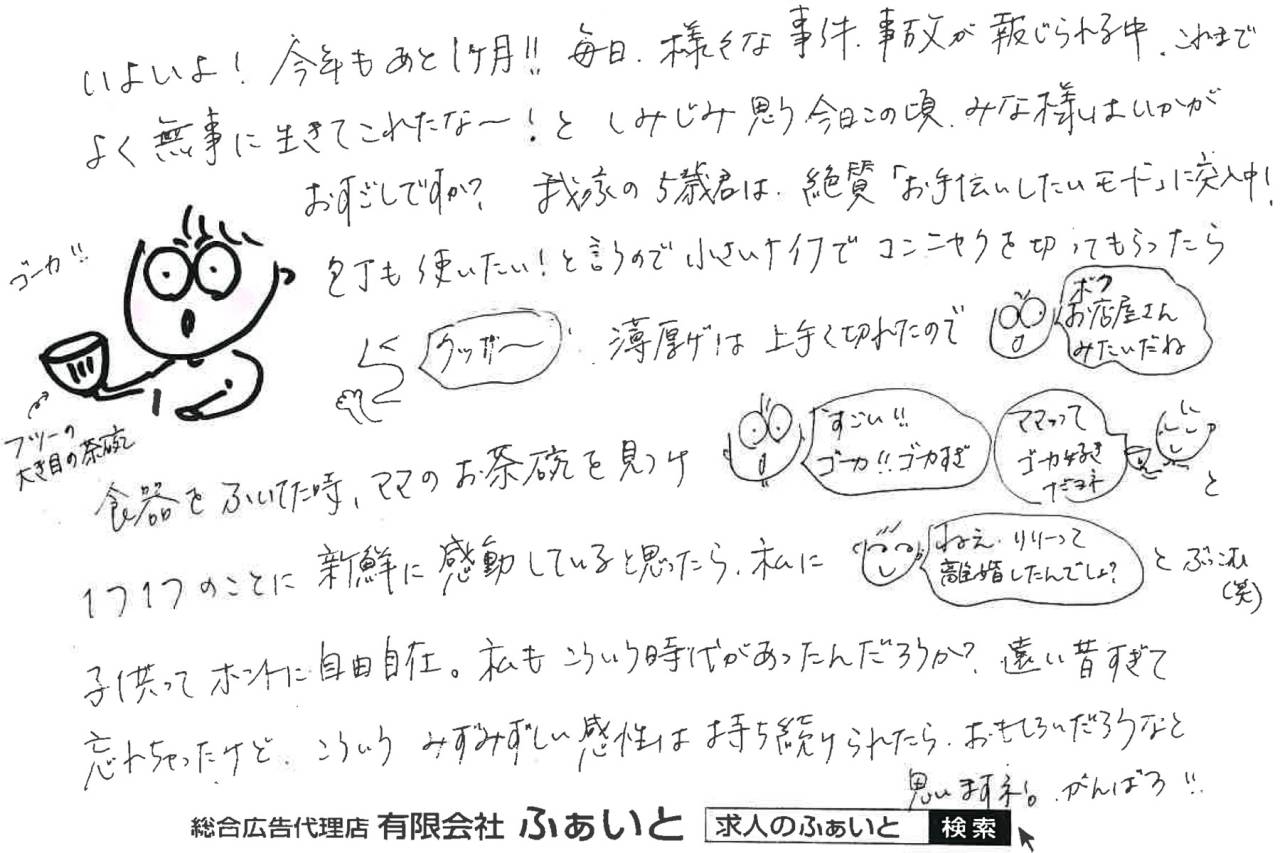 いよいよ! 今年もあと1ヶ月!! 毎日、様々な事件、事故が報じられる中、これまで
よく無事に生きてこれたな〜!と しみじみ思う今日この頃、みな様はいかが
おすごしですか? 我家の5歳君は、絶賛「お手伝いしたいモード」に突入中!
ゴーカ!!
包丁も使いたい!と言うので小さいナイフでコンニャクを切ってもらったら
ウッガ〜
薄厚ゲは上手く切れたので
ボク
お店屋さん
みたいだね
フツーの
大き目の茶碗
食器をふいてた時、ママのお茶碗を見つけ
すごい!!
ゴーカ!!ゴカすぎ
ママって
ゴーカ好き
ナだヨネ
と
1つ1つのことに新鮮に感動していると思ったら、私に
ねえ、リリーって
離婚したんでしょ?
とぶっこむ
(笑)
子供ってホントに自由自在。私もこういう時代があったんだろうか? 遠い昔すぎて
忘れちゃったけど、こういうみずみずしい感性は持ち続けられたら、おもしろいだろうなと
思いますネ!。がんばろ!!
総合広告代理店 有限会社 ふぁいと 求人のふぁいと 検索